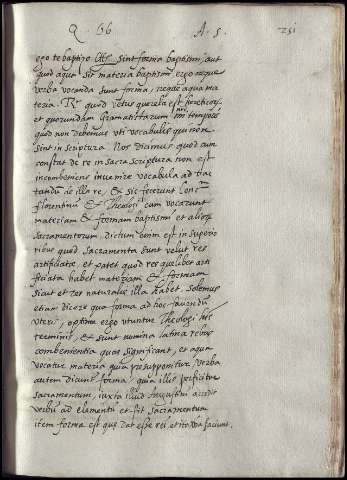 Q. 66 A. 5. 251
ego te baptizo etc. sint forma baptismi, aut
quod aqua sit materia baptismi ergo neque
verba vocanda sunt forma, neque aqua ma
teria. Rr. quod vetus querela est hereticorū
et quorundam Gramatistarum nri temporis
quod non debemus uti vocabulis qui non
sint in scriptura. Nos dicimus quod cum
constat de re in sacra scriptura non est
inconveniens invenire vocabula ad trac
tandū de illa re, & sic fecerunt Conc.
florentinū & Theologi cum vocarunt
materiam & formam baptismi et aliorū
sacramentorum. dictum enim est in superio
ribus quod sacramenta sunt velut res
artificiatæ et patet quod res quælibet arti
ficiata habet materiam & formam
sicut et res naturalis illa habet. solemus
etiam dicere qua forma ad hoc faciendū
uteris, optime ergo utuntur Theologi his
terminis, & sunt nomina latina rebus
convenientia quas significant, et aqua
vocatur materia quia presupponitur, verba
autem dicunt forma, quia illis perficitur
sacramentum, iuxta illud Augustini accedit
verbū ad elementū et fit sacramentum
item forma est quæ dat esse rei, et ita verba faciunt.